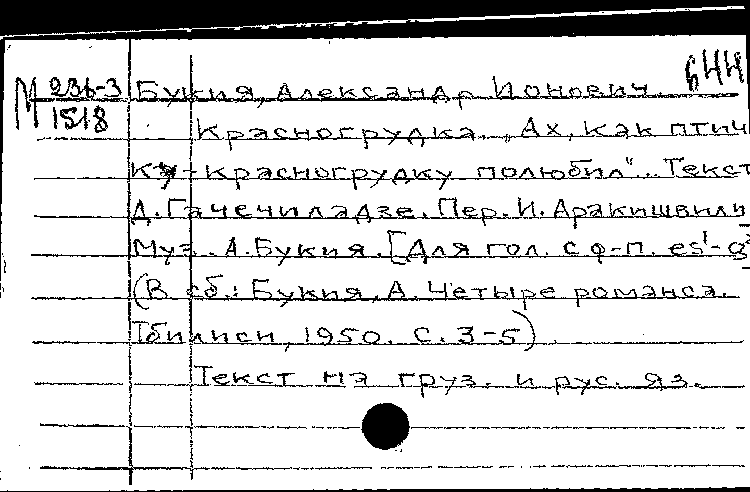 М 236-3 Букия, Александр Ионович. 644
1518 Красногрудка. „Ах, как птич
ку-красногрудку полюбил". Текст
Д. Гачечиладзе. Пер. И. Аракишвили
Муз. А. Букия. [Для гол. с ф-п. es¹-g²
(В сб.: Букия, А. Четыре романса.
Тбилиси, 1950. С. 3-5)
Текст на груз. и рус. яз.